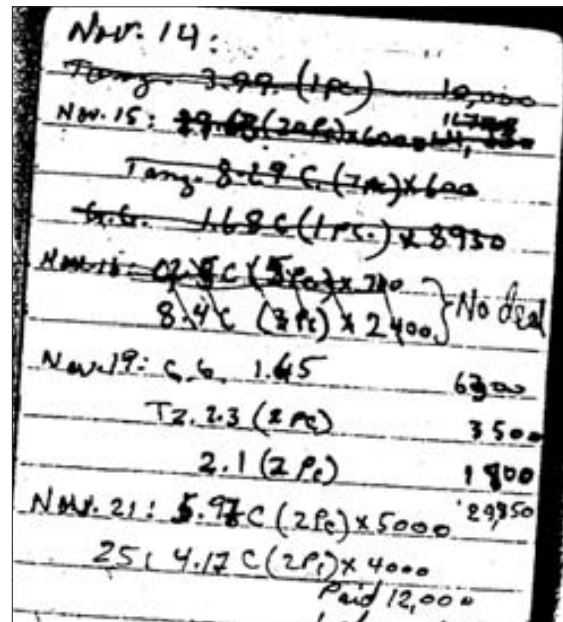 Nov. 14:
Tanz. 3.99. (1pc.) 10,000
Nov. 15: (20Pc) x 600
Tanz. 8.29 C. (7pc) x 600
G.G. 1.68 C (1 PC.) x 8930
Nov. 16: (5Pc) x 700
8.4 C (3 Pc) x 2400 } No deal
Nov. 19: G.G. 1.65 6300
TZ. 2.3 (2 Pc) 3500
2.1 (2 Pc) 1800
Nov. 21: 5.97 C (2Pc) x 5000 29,850
25: 4.17 C (2Pc) x 4000
Paid 12,000